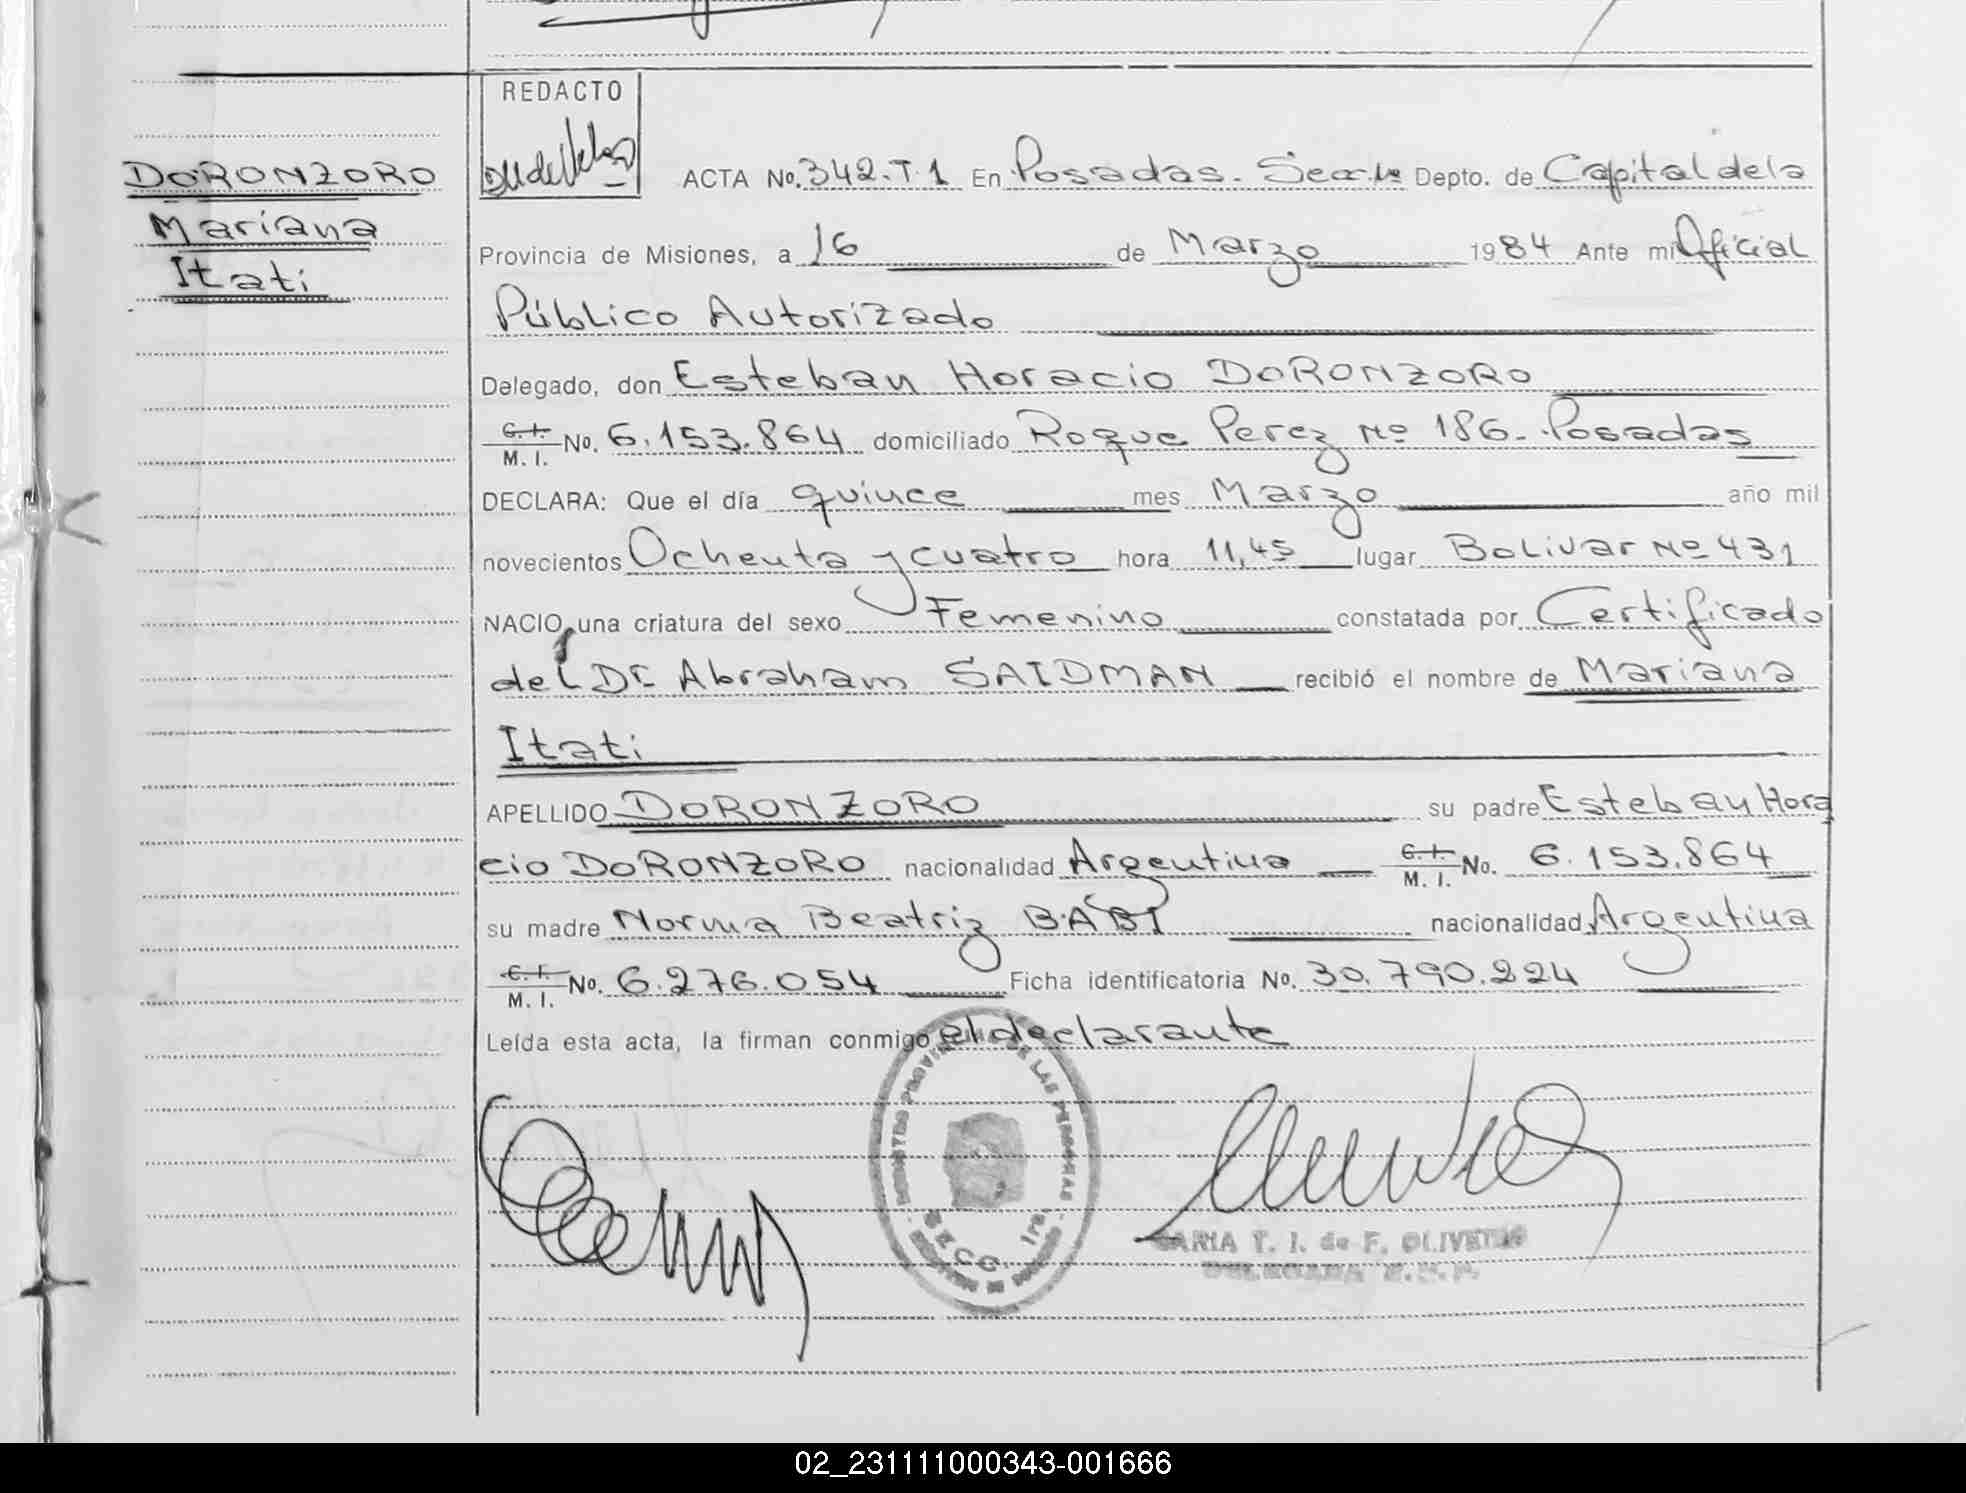 REDACTO
DORONZORO
Mariana
Itati
ACTA No. 342. T. 1 En Posadas. Sec. 1a Depto. de Capital de la
Provincia de Misiones, a 16 de Marzo 1984 Ante mi Oficial
Público Autorizado
Delegado, don Esteban Horacio DORONZORO
C. I. M. I. No. 6.153.864 domiciliado Roque Perez No 186. Posadas
DECLARA: Que el día quince mes Marzo año mil
novecientos Ochenta y cuatro hora 11,45 lugar Bolivar No 431
NACIO, una criatura del sexo Femenino constatada por Certificado
del Dr. Abraham SAIDMAN recibió el nombre de Mariana
Itati
APELLIDO DORONZORO su padre Esteban Hora
cio DORONZORO nacionalidad Argentina C. I. M. I. No. 6.153.864
su madre Norma Beatriz BABI nacionalidad Argentina
C. I. M. I. No. 6.276.054 Ficha identificatoria No. 30.790.224
Leída esta acta, la firman conmigo el declarante
DE LAS PERSONAS
MARIA T. I. de F. OLIVETTO
DELEGADA
02_231111000343-001666